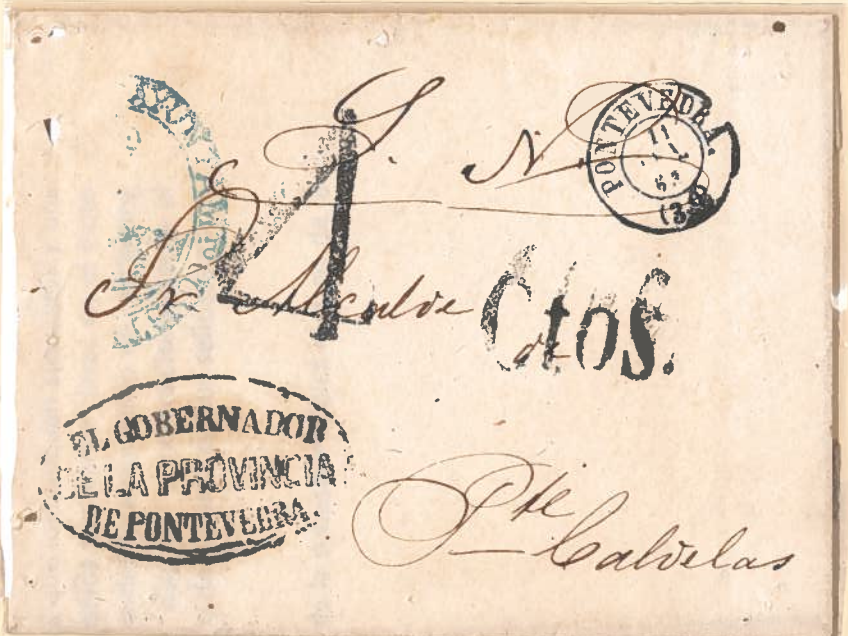 S. N.
PONTEVEDRA.
11
(36)
4 Ctos.
Sr Alcalde
de
EL GOBERNADOR
DE LA PROVINCIA
DE PONTEVEDRA.
Pte Caldelas